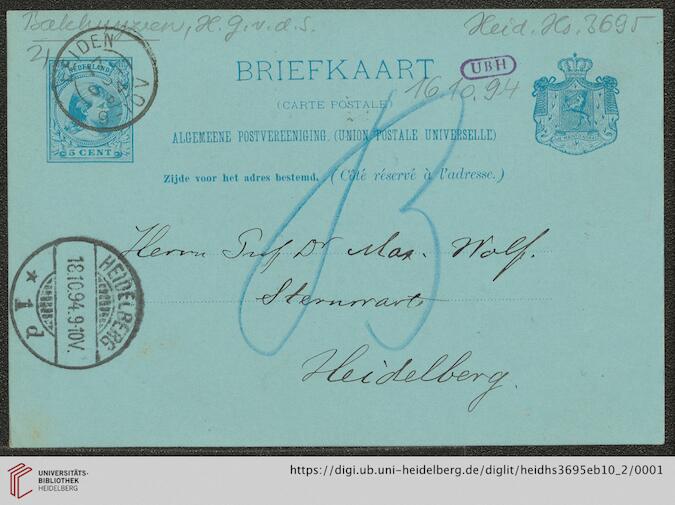 Bakhuyzen, H. G. v. d. S.
Heid. Hs. 3695
2
LEIDEN
NEDERLAND
5 CENT
BRIEFKAART
UBH
16.10.94
(CARTE POSTALE)
ALGEMEENE POSTVEREENIGING. (UNION POSTALE UNIVERSELLE)
Zijde voor het adres bestemd. (Côté réservé à l'adresse.)
B
Herrn Prof Dr Max. Wolf.
Sternwarte
Heidelberg.
HEIDELBERG
18.10.94.9-10V.
* 1d
UNIVERSITÄTS-
BIBLIOTHEK
HEIDELBERG
https://digi.ub.uni-heidelberg.de/diglit/heidhs3695eb10_2/0001